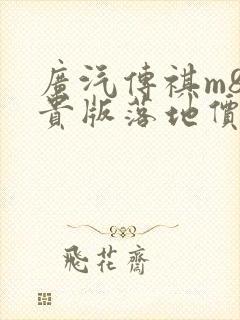 廣汽傳祺m8
貴版落地價
飛花齋